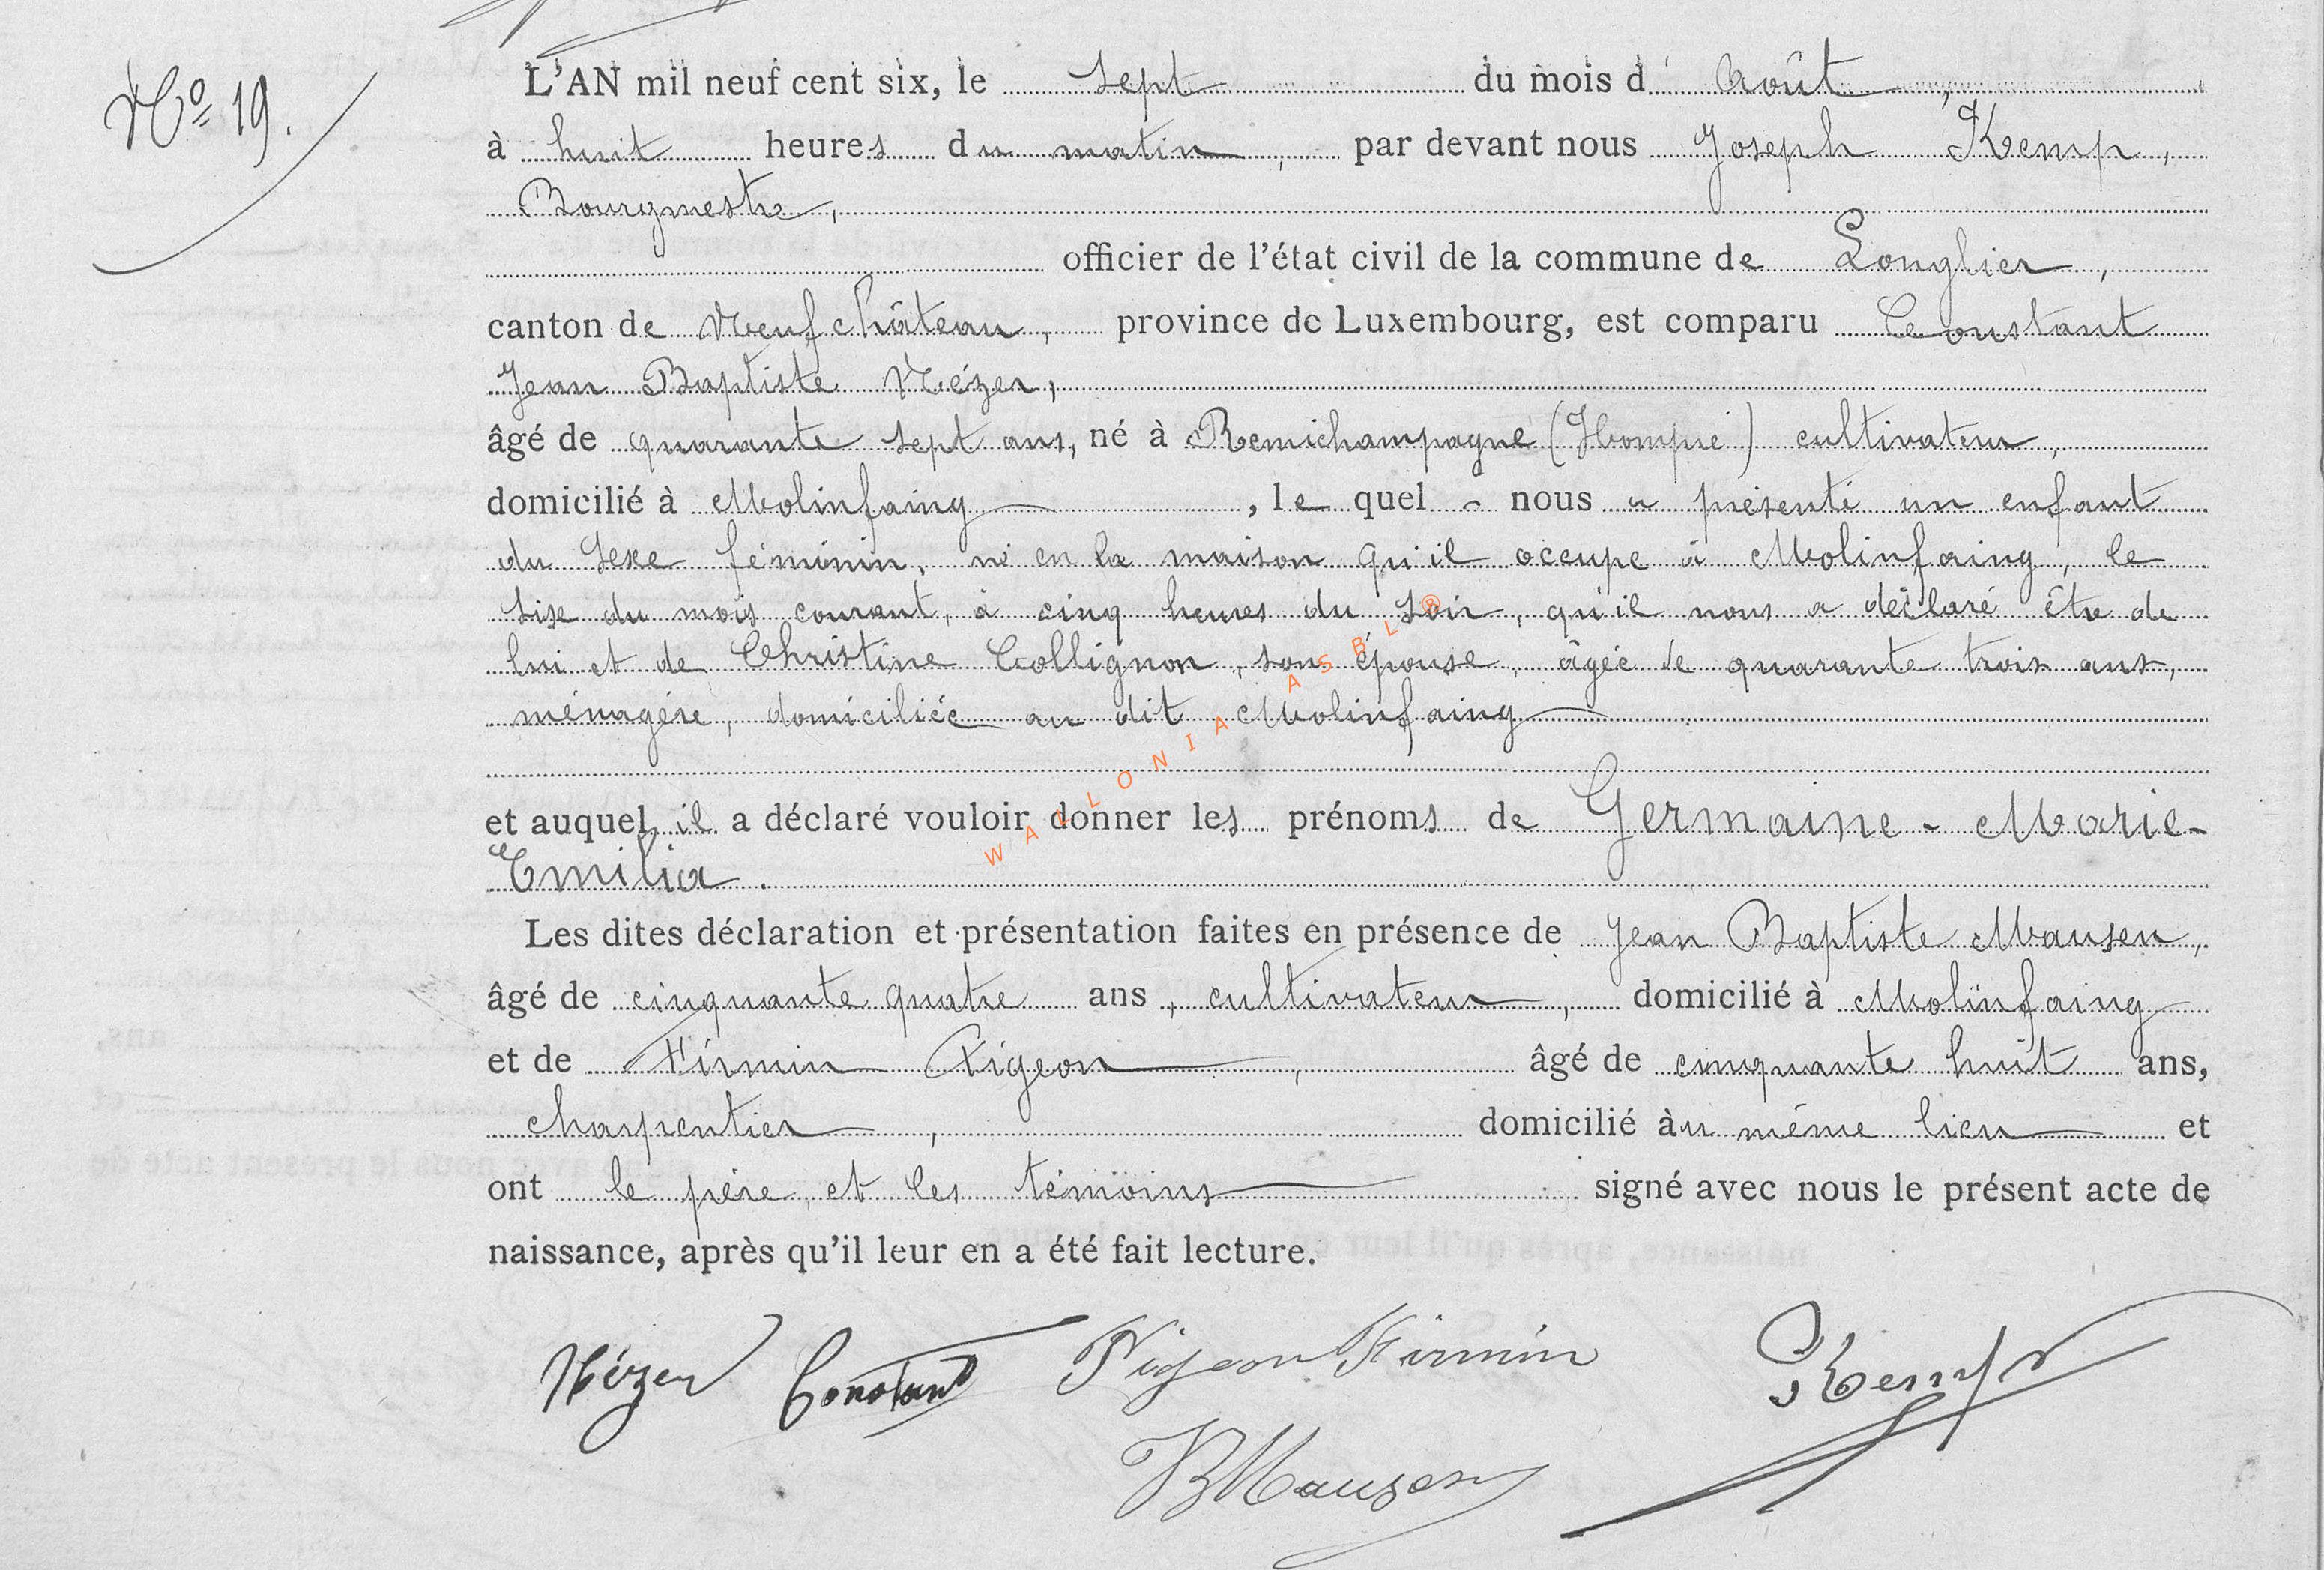 No 19.
L'AN mil neuf cent six, le sept du mois d'Août,
à huit heures du matin, par devant nous Joseph Kemp,
Bourgmestre,
officier de l'état civil de la commune de Longlier,
canton de Neufchâteau, province de Luxembourg, est comparu Constant
Jean Baptiste Nézer,
âgé de quarante sept ans, né à Remichampagne (Hompré) cultivateur,
domicilié à Molinfaing, lequel nous a présenté un enfant
du sexe féminin, né en la maison qu'il occupe à Molinfaing, le
six du mois courant, à cinq heures du soir, qu'il nous a déclaré être de
lui et de Christine Collignon, son épouse, âgée de quarante trois ans,
ménagère, domiciliée au dit Molinfaing
et auquel il a déclaré vouloir donner les prénoms de Germaine-Marie-
Emilia.
Les dites déclaration et présentation faites en présence de Jean Baptiste Mausen,
âgé de cinquante quatre ans, cultivateur, domicilié à Molinfaing
et de Firmin Pigeon, âgé de cinquante huit ans,
charpentier, domicilié au même lieu et
ont le père et les témoins signé avec nous le présent acte de
naissance, après qu'il leur en a été fait lecture.
Nézer Constant Pigeon Firmin Kemp
JBMausen
WALLONIA ASBL ®